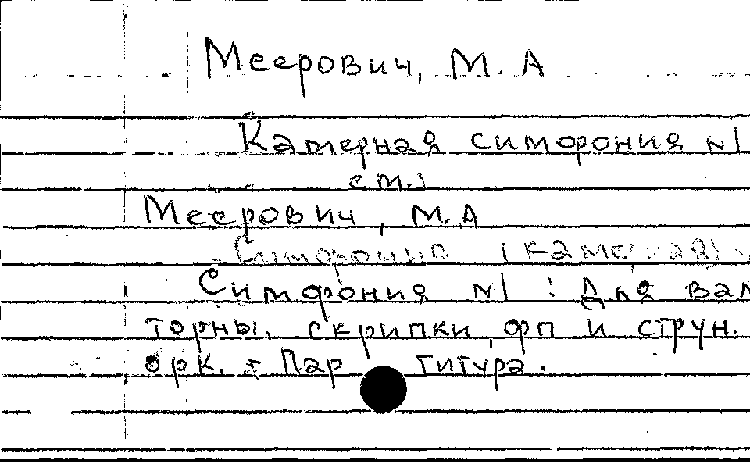 Меерович, М. А
Камерная симфония N1
см.:
Меерович, М. А
Симфония (камерная)
Симфония N1 : Для вал
торны, скрипки, фп и струн.
орк. - Партитура.